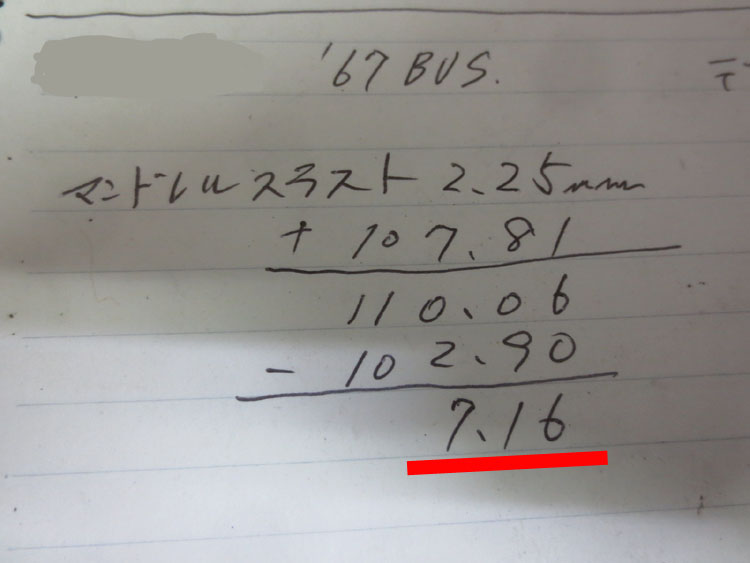 '67 BUS.
マンドレルスラスト 2.25mm
+ 107.81
110.06
- 102.90
7.16